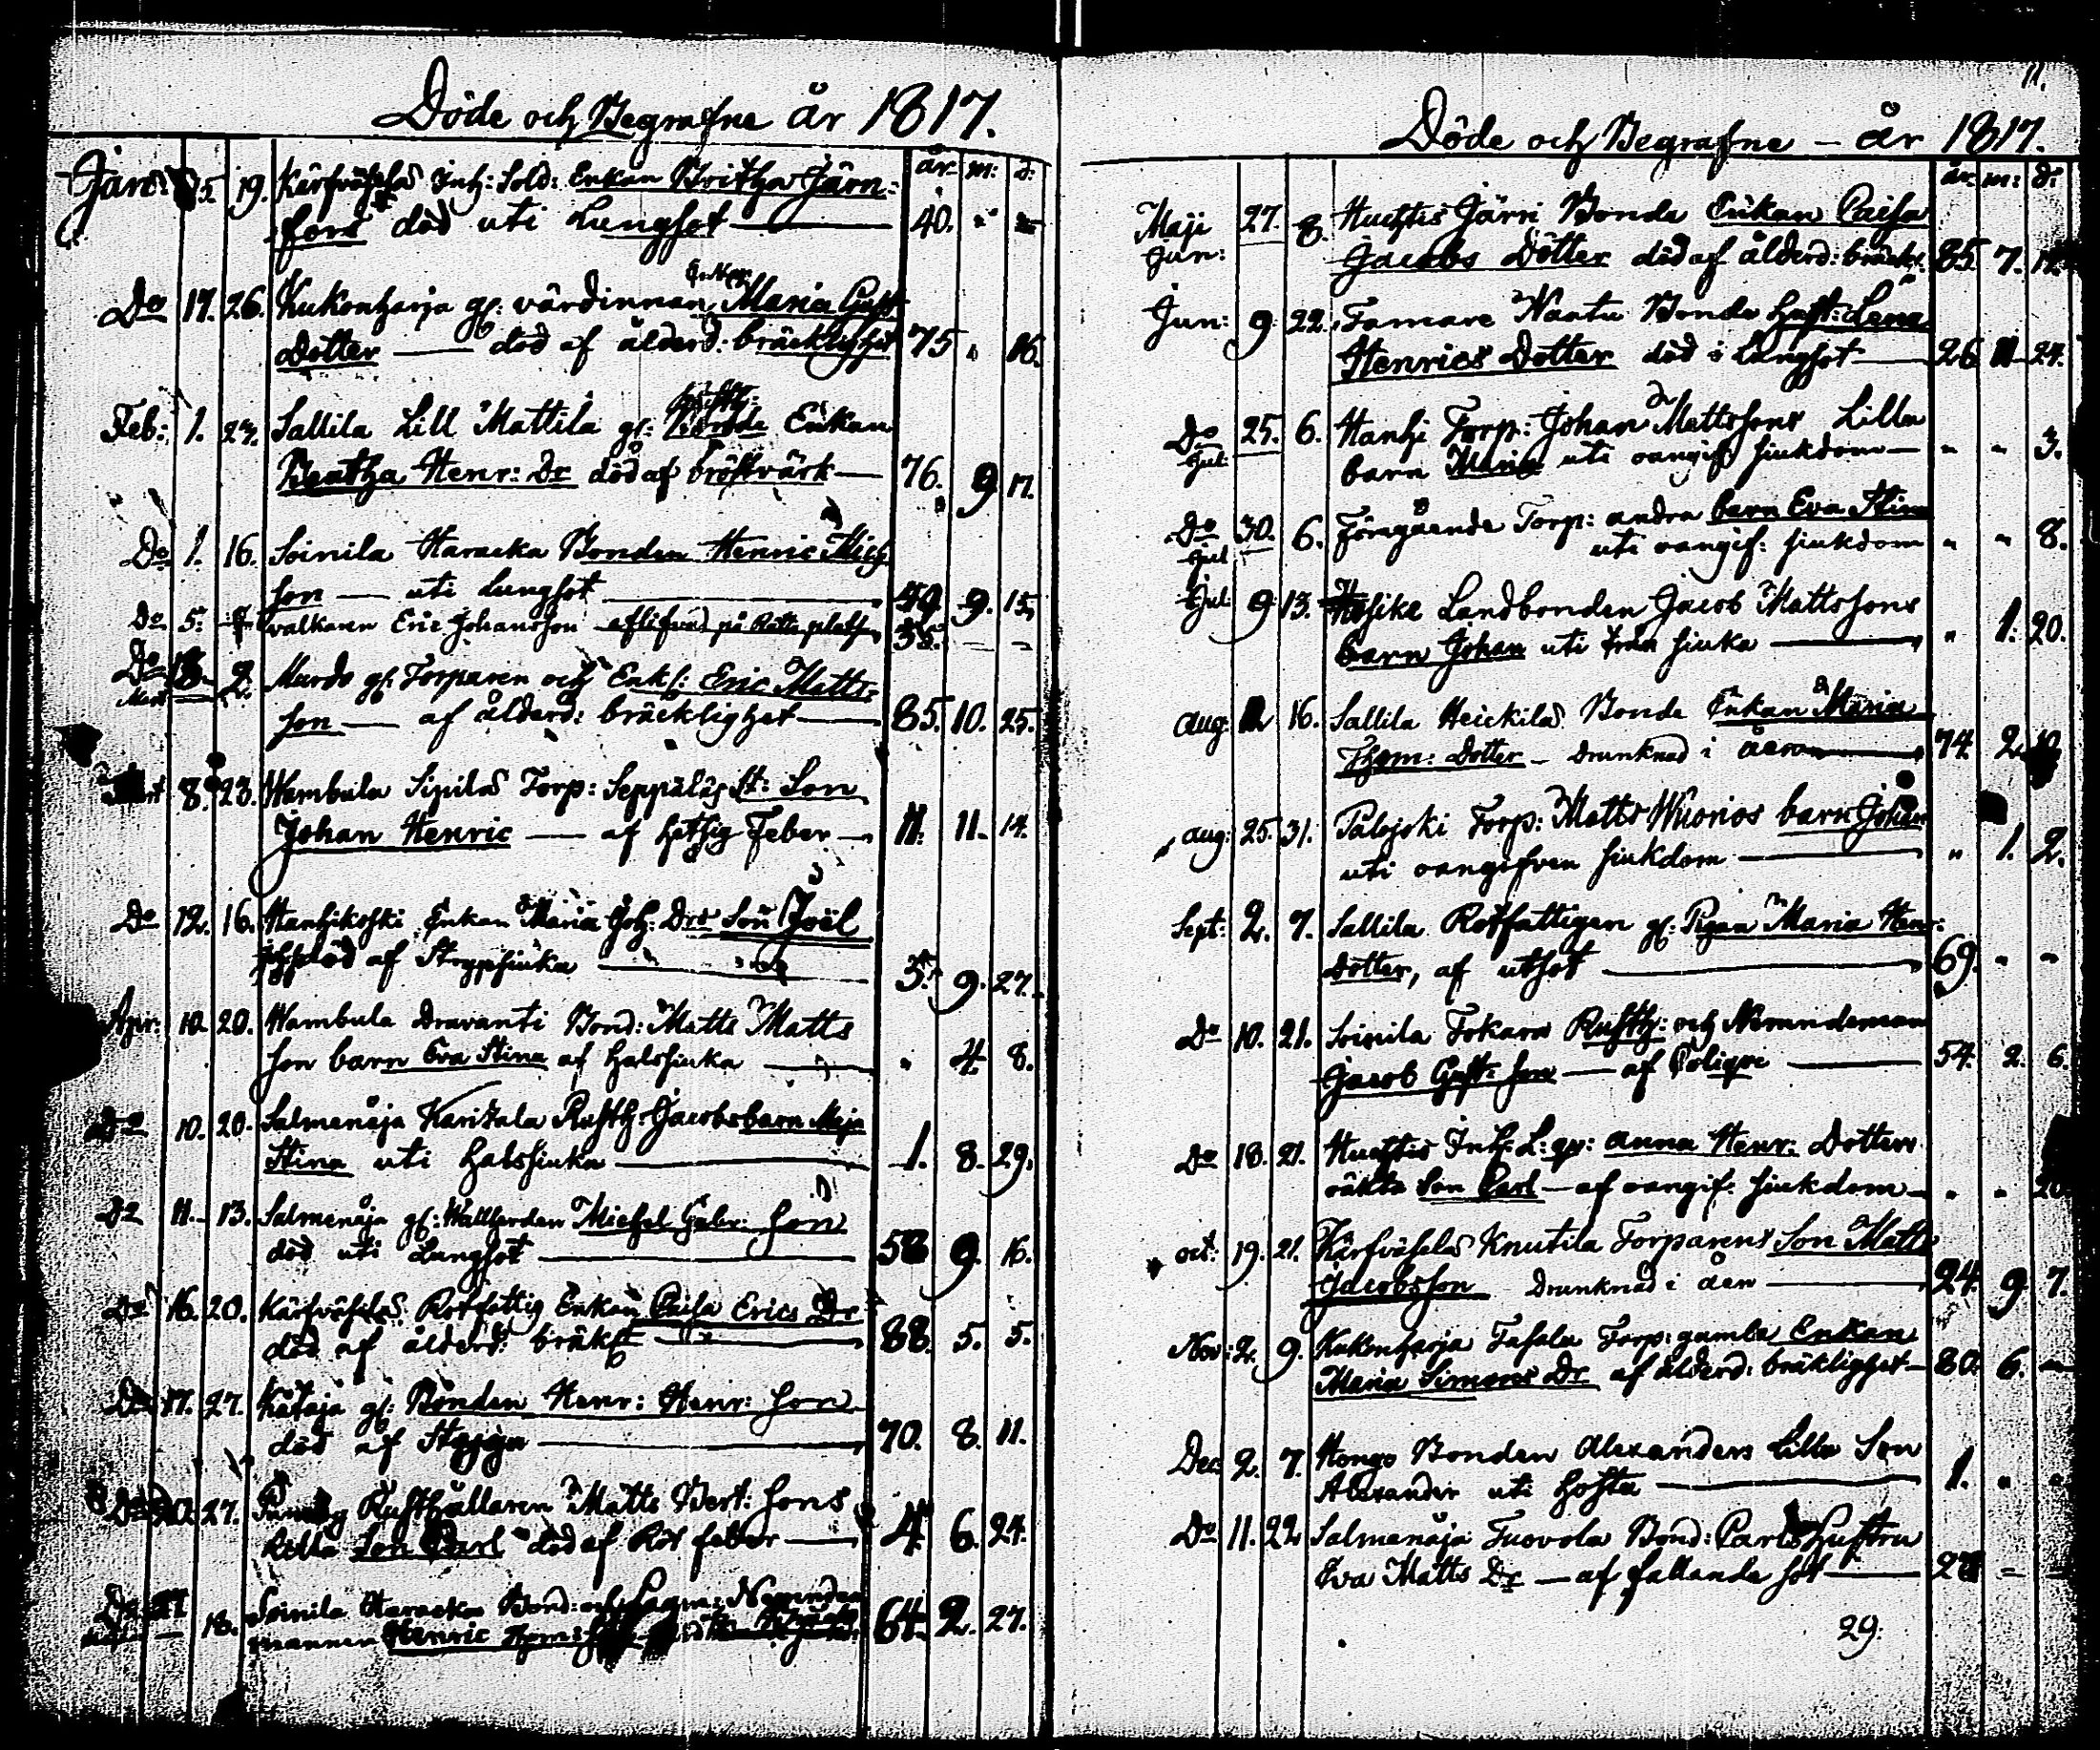 Döde och Begrafne år 1817.
år. m: d:
Jan: 15. 19. Kärfväselä Inh: Sold: Enkan Britha Järn-
fors död uti Lungsot — 40. " "
Do 17. 26. Kukonharja gl: värdinnan Enkan Maria Gust
Dotter — död af ålderd: bräcklighet 75 " 16.
Feb: 1. 23. Sallila Lill Mattila gl: Enkan
Beatha Henr: Dr död af bröstvärk — 76. 9 17.
Do 1. 16. Soinila Haracka Bonden Henric Mich
son — uti Lungsot — 49. 9. 15.
Do 5. valkaren Eric Johansson aflifvad på Rätte platsen 35. — —
Do 18. 2. Murdo gl: Torparen och Enkl: Eric Matts-
Mart
son — af ålderd: bräcklighet — 85. 10. 25.
Mart 8. 23. Wambula Sipilas Torp: Seppäläs St: Son
Johan Henric — af hetsig Feber — 11. 11. 14.
Do 12. 16. Hanhikoski Enkan Maria Joh: Drs Son Joël
död af Strypsiuka — 5. 9. 27.
Apr: 10. 20. Wambula Dravanti Bond: Matts Matts
son barn Eva Stina af halssiuka — " 4. 8.
Do 10. 20. Salmenoja Karitala Rusth: Jacobs barn Maja
Stina uti halssiuka — 1. 8. 29.
Do 11. 13. Salmenoja gl: Michel Gabr: son
död uti Lungsot — 58 9. 16.
Do 16. 20. Kärfväselä Rotfattig Enkan Caisa Erics Dr
död af ålderd: bräkl — 88. 5. 5.
Do 17. 27. Kataja gl: Bonden Henr: Henr: son
död af Stygn — 70. 8. 11.
Do 20. 27. Rusthållaren Matts Bert: sons
lilla Son Carl död af Röt feber — 4. 6. 24.
Do 27 18. Soinila Haracka Bond: och Lagm: Nemnde
mannen Henric 64. 2. 27.
11.
Döde och Begrafne — år 1817.
år. m: d:
Maji 27. 8. Huchtis Järri Bonde Enkan Caisa
Jun:
Jacobs Dotter död af ålderd: bräckl. 85. 7. 12.
Jun: 9. 22. Tamare Nantu Bonde hust: Lena
Henrics Dotter död i Lungsot — 26 11 24.
Do 25. 6. Hanhi Torp: Johan Mattssons Lilla
Jul:
barn Maria uti oangif: siukdom — " " 3.
Do 30. 6. Föregående Torp: andra barn Eva Stina
Jul
uti oangif: siukdom " " 8.
Jul: 9. 13. Landbonden Jacob Mattssons
barn Johan uti siuka — " 1. 20.
Aug: 16. Sallila Heickiläs Bonde Enkan Maria
Thom: Dotter — Drunknad i — 74. 2.
Aug: 25. 31. Palojoki Torp: Matts Wuorios barn Johan
uti oangifven siukdom — " 1. 2.
Sept: 2. 7. Sallila Rotfattigen gl: Pigan Maria Henr:
Dotter, af utsot — 69. " "
Do 10. 21. Soinila Tokara Rusth: och Nemndeman
Jacob Gust: son — af Colique — 54. 2. 6.
Do 18. 21. Huchtis Inh: L: gr: Anna Henr: Dotters
oäkta Son Carl — af oangif: siukdom — " " 20
oct: 19. 21. Kärfväselä Knutila Torparens Son Matts
Jacobsson Drunknad i åen — 24. 9. 7.
Nov: 2. 9. Kukonharja Tasala Torp: gamla Enkan
Maria Simons Dr. af ålderd: bräklighet — 80. 6. —
Dec: 2. 7. Hongo Bonden Alexanders Lilla Son
Alexander uti hosta — 1. " "
Do 11. 22 Salmenoja Tuovola Bond: Carls Hustru
Eva Matts Dr — af fallande sot — 27 — —
29.